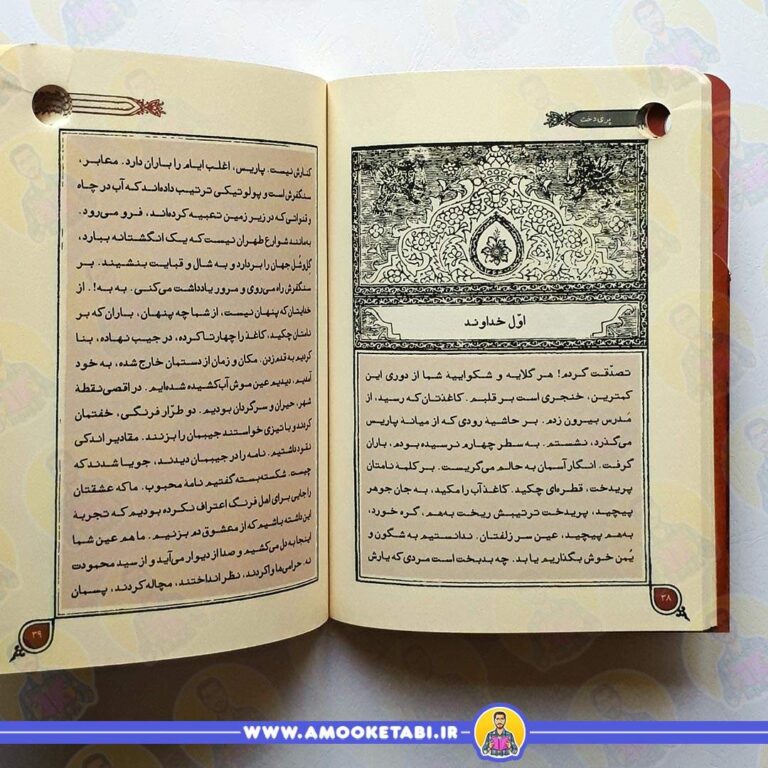 پری‌دخت
اوّل خداوند
تصدّقت گردم! هر گلایه و شکواییهٔ شما از دوری این
کمترین، خنجری است بر قلبم. کاغذتان که رسید، از
مَدرس بیرون زدم. بر حاشیهٔ رودی که از میانهٔ پاریس
می‌گذرد، نشستم. به سطر چهارم نرسیده بودم، باران
گرفت. انگار آسمان به حالم می‌گریست. بر کلمهٔ نامتان
پریدخت، قطره‌ای چکید. کاغذ آب را مکید، به جان جوهر
پیچید، پریدخت ترتیبش ریخت به‌هم، گره خورد،
به‌هم پیچید، عین سر زلفتان. ندانستیم به شگون و
یُمن خوش بگذاریم یا بد. چه بدبخت است مردی که یارش
۳۸
کنارش نیست. پاریس، اغلب ایام را باران دارد. معابر،
سنگفرش است و پولوتیکی ترتیب داده‌اند که آب در چاه
و قنواتی که در زیر زمین تعبیه کرده‌اند، فرو می‌رود.
به‌مانند شوارع طهران نیست که یک انگشتانه ببارد،
گل‌و‌شُل جهان را بردارد و به شال و قبایت بنشیند. بر
سنگفرش راه می‌روی و مرور یادداشت می‌کنی. به به!. از
خدایتان که پنهان نیست، از شما چه پنهان، باران که بر
نامتان چکید، کاغذ را چهارتا کرده، در جیب نهاده، بنا
کردیم به قدم‌زدن. مکان و زمان از دستمان خارج شده، به خود
آمدیم، دیدیم عین موش آب‌کشیده شده‌ایم. در اقصی‌نقطهٔ
شهر، حیران و سرگردان بودیم. دو طرّار فرنگی، خفتمان
کردند و با تیزی خواستند جیبمان را بزنند. مقادیر اندکی
نقود داشتیم. نامه را در جیبمان دیدند، جویا شدند که
چیست. شکسته‌بسته گفتیم نامهٔ محبوب. ما که عشقتان
را جایی برای اهل فرنگ اعتراف نکرده بودیم که تجربهٔ
این داشته باشیم که از معشوق دم بزنیم. ما هم عین شما
اینجا به دل می‌کشیم و صدا از دیوار می‌آید و از سید محمودت
نه. حرامی‌ها وا کردند، نظر انداختند، مچاله کردند، پسمان
۳۹
WWW.AMOOKETABI.IR